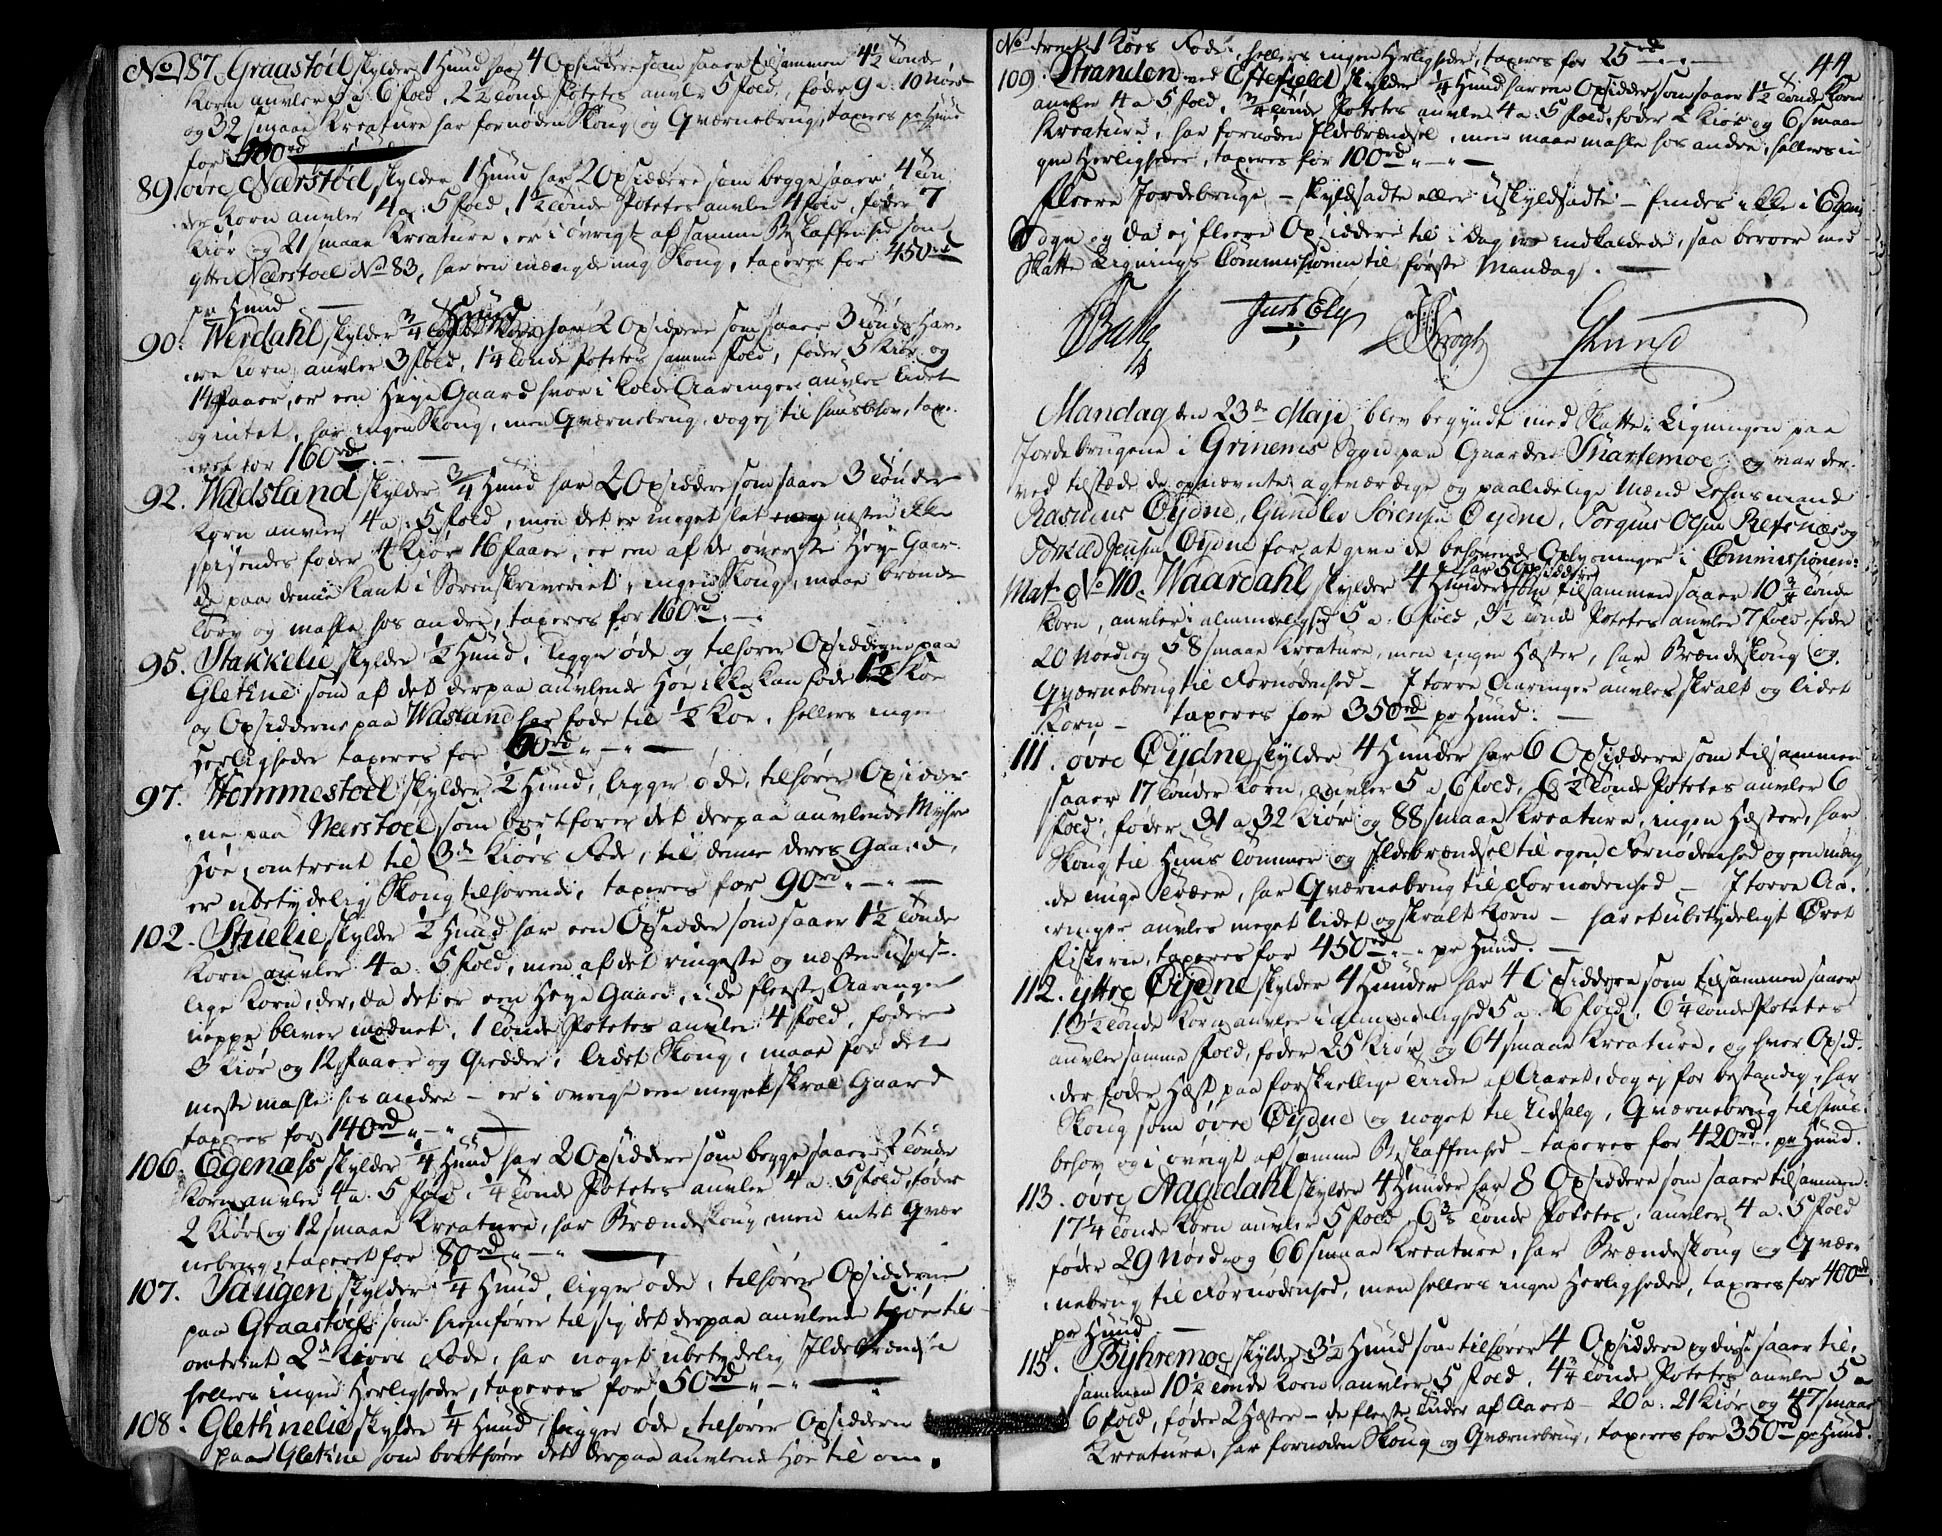 No 87. Graastøel skylder 1 Hund har 4 Opsiddere som saaer tilsammen 4½ tønde
Korn avvler 5 a 6 fold, 2½ tønde Potetes avvler 5 fold, føder 9 a 10 Nød
og 32 smaae Kreature har fornøden Skoug og Qværnebrug, taxeres pr Hund
for 500rd
89. øvre Neerstoel skylder 1 Hund har 2 Opsiddere som begge saaer 4 tøn
der Korn avvler 4 a: 5 fold, 1½ tønde Potetes avvler 4 fold, føder 7
Kiør og 21 smaae Kreature, er i øvrigt af samme Beskaffenhed som
yttre Neerstoel No 83, har en mængde ung Skoug, taxeres for 450rd
pr Hund
90. Werdahl skylder ¾ Hund har 2 Opsiddere som saaer 3 tønde Hav-
re Korn avvler 3 fold, 1¼ tønde Potetes samme fold, føder 5 Kiør og
14 Faaer, er een Heye Gaard hvor i kolde Aaringer avvles lidet
og intet, har ingen Skoug, men Qværnebrug, dog ej til huusbehov, tax-
eres for 160rd
92. Wadsland skylder ¾ Hund har 2 Opsiddere som saaer 3 tønder
Korn avvler 4 a: 5 fold, men det er meget slet næsten ikke
spisendes føder 4 Kiør 16 Faaer, er en af de øverste Heye Gaar-
de paa denne Kant i Sorenskriveriet, ingen Skoug, maae brænde
Torv og mahle hos andre, taxeres for 160rd
95. Stakkelie skylder ½ Hund, ligger øde og tilhører Opsidderne paa
Gletine som af det derpaa avvlende Høe ikke kan føde 1½ Koe
og Opsidderne paa Wasland har føde til ½ Koe, hellers ingen
Herligheder taxeres for 60rd
97. Hommestoel skylder ½ Hund, ligger øde, tilhører Opsidder-
ne paa Neerstoel som bortfører det derpaa avvlende Myhre
Høe, omtrent til 3de Kiørs Føde, til denne deres Gaard,
er ubetydelig Skoug tilhørende, taxeres for 90rd
102. Stuelie skylder ½ Hund har een Opsidder som saaer 1½ tønde
Korn avvler 4 a: 5 fold, men af det ringeste og næsten uspise-
lige Korn, der, da det er een Heye Gaard, i de fleeste Aaringer
neppe bliver modnet, 1 tønde Potetes avvler 4 fold, føder
3 Kiør og 12 Faaer og Gieder, lidet Skoug, maae for det
meste mahle hos andre – er i øvrigt een meget skral Gaard
taxeres for 140rd
106. Egenæss skylder ¼ Hund har 2 Opsiddere som begge saaer 2 tønder
Korn avvler 4 a: 5 fold, ¼ tønde Potetes avvler 4 a: 5 fold, føder
2 Kiør og 12 smaae Kreature, har Brændeskoug, men intet Qvær
nebrug, taxeret for 80rd
107. Saugen skylder ¼ Hund, ligger øde, tilhører Opsidderne
paa Graastøel som hiemfører til sig det derpaa avvlende Høe til
omtrent 2de Kiørs Føde, har noget ubetydelig Ildebrændsel
hellers ingen Herligheder, taxeres for 50rd
108. Glethnelie skylder ¼ Hund, ligger øde, tilhører Opsidderne
paa Gletine som bortfører det derpaa avvlende Høe til om
44
No trent 1 Koes Føde, hellers ingen Herligheder, taxeres for 25rd
109. Stranden ved Eftefield skylder ¼ Hund har een Opsidder som saaer 1½ tønde Korn
avvler 4 a 5 fold, ¾ tønde Potetes avvler 4 a: 5 fold, føder 2 Kiør og 6 smaae
Kreature, har fornøden Ildebrændsel, men maae mahle hos andre, hellers in
gen Herligheder, taxeres for 100rd
Fleere Jordebruge – skyldsadte eller uskyldsadte – findes ikke i Egens
Sogn og da ej fleere Opsiddere til i dag ere indkaldede, saa beroer med
Skatte Lignings Commissionen til første Mandag.
Just Ely
Mandag den 23de Maji blev begyndt med Skatte-Ligningen paa
Jordebrugene i Grinems Sogn paa Gaarden Snartemoe, og var der-
ved tilstæde de opnævnte agtværdige og paalidelige Mænd Lehnsmand
Rasmus Øydne, Gundlev Sørensen Øydne, Torgius Olsen Refsnæs og
Tarald Jensen Øydne for at give de behøvende Oplysninger i Commissionen:
Mat. No 110. Waardahl skylder 4 Hunder har 5 Opsiddere som tilsammen saaer 10¾ tønde
Korn, avvler i almindelighed 5 a: 6 fold, 3½ tønde Potetes avvler 7 fold, føder
20 Nød og 58 smaae Kreature, men ingen Hæster, har Brændeskoug og
Qværnebrug til Fornødenhed – I tørre Aaringer avvles skralt og lidet
Korn – taxeres for 350rd pr Hund.
111. øvre Øydne skylder 4 Hunder har 6 Opsiddere som tilsammen
saaer 17 tønder Korn, avvler 5 a 6 fold, 6½ tønde Potetes avvler 6
fold, føder 31 a 32 Kiør og 88 smaae Kreature, ingen Hæster, har
Skoug til Huus Tømmer og Ildebrændsel til egen Fornødenhed og een mæng
de unge Træer, har Qværnebrug til Fornødenhed – I tørre Aa-
ringer avvles meget lidet og skralt Korn – har et ubetydeligt Øret
Fiskerie, taxeres for 450rd pr Hund.
112. yttre Øydne skylder 4 Hunder har 4 Opsiddere som tilsammen saaer
13½ tønde Korn avvler i almindelighed 5 a: 6 fold, 6¼ tønde Potetes
avvler samme fold, føder 25 Kiør og 64 smaae Kreature, og hver Opsid-
der føder Hæst paa forskiellige Tiider af Aaret, dog ej for bestandig, har
Skoug som øvre Øydne og noget til Udsalg, Qværnebrug til huus-
behov og i øvrigt af samme Beskaffenhed – taxeres for 420rd pr Hund.
113. øvre Aagedahl skylder 4 Hunder har 8 Opsiddere som saaer tilsammen
17¼ tønde Korn avvler 5 fold, 6⅜ tønde Potetes, avvler 4 a: 5 fold
føder 29 Nød og 66 smaae Kreature, har Brændeskoug og Qvær-
nebrug til Fornødenhed, men hellers ingen Herligheder, taxeres for 400rd
pr Hund
115. Byhremoe skylder 3½ Hund som tilhører 4 Opsiddere og disse saaer til-
sammen 10½ tønde Korn avvler 5 fold, 4¾ tønde Potetes avvler 5 a
6 fold, føder 2 Hæster – de fleeste Tiider af Aaret – 20 a: 21 Kiør og 47 smaae
Kreature, har fornøden Skoug og Qværnebrug, taxeres for 350rd pr Hund.